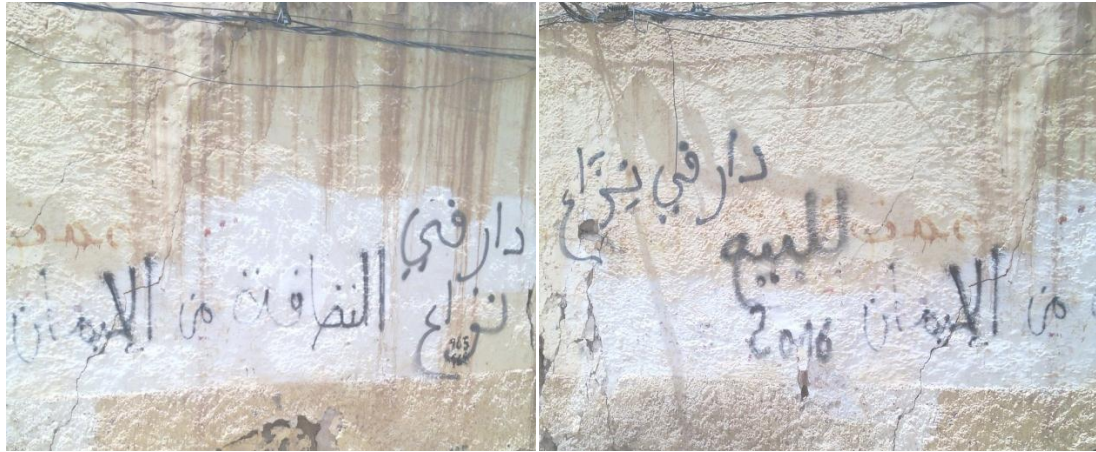 دار في
نزاع
النضافة من الإيمان
دار في نزاع
للبيع
2016
من الإيمان